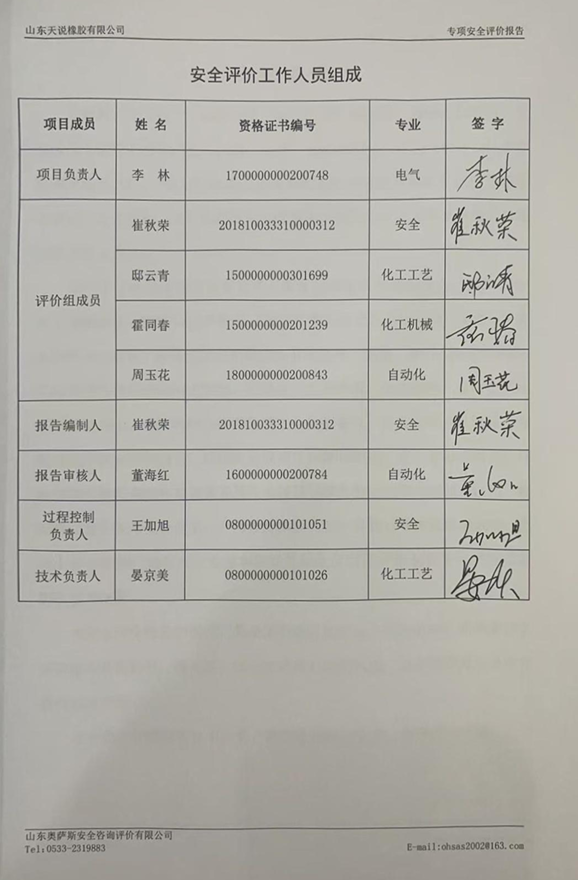 山东天说橡胶有限公司 专项安全评价报告
安全评价工作人员组成
项目成员 姓 名 资格证书编号 专业 签 字
项目负责人 李 林 1700000000200748 电气 李林
评价组成员 崔秋荣 201810033310000312 安全 崔秋荣
邸云青 1500000000301699 化工工艺 邸云青
霍同春 1500000000201239 化工机械
周玉花 1800000000200843 自动化 周玉花
报告编制人 崔秋荣 201810033310000312 安全 崔秋荣
报告审核人 董海红 1600000000200784 自动化
过程控制
负责人 王加旭 0800000000101051 安全
技术负责人 晏京美 0800000000101026 化工工艺
山东奥萨斯安全咨询评价有限公司
Tel:0533-2319883 E-mail:ohsas2002@163.com